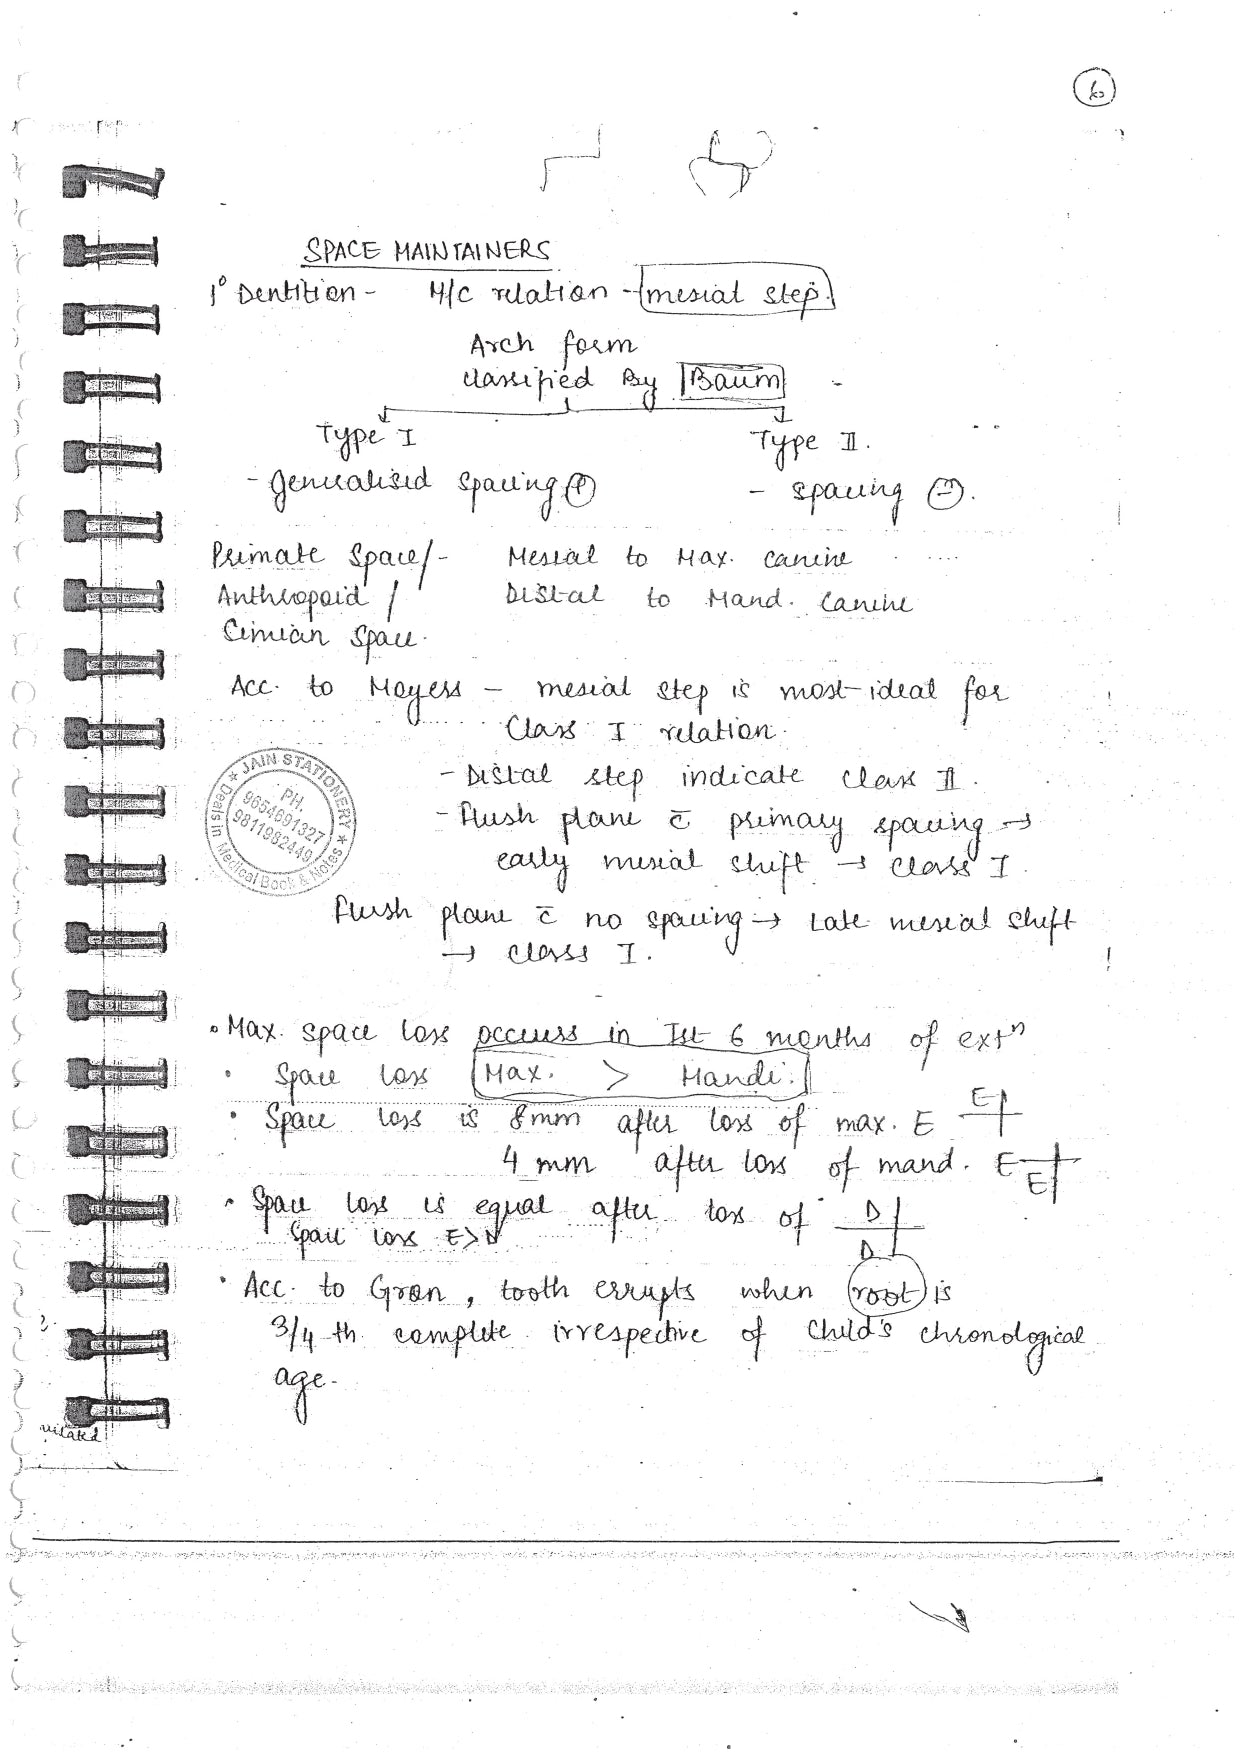 6
SPACE MAINTAINERS
1° Dentition - M/C relation - mesial step.
Arch form
classified By Baum -
Type I
Type II.
- Generalised spacing ⊕
- spacing ⊖.
Primate Space/- Mesial to Max. canine
Anthropoid / Distal to Mand. canine
Simian Space.
Acc. to Moyers - mesial step is most ideal for
Class I relation.
- Distal step indicate class II.
- Flush plane c̄ primary spacing →
early mesial shift → class I.
Flush plane c̄ no spacing → Late mesial shift
→ class I.
★ JAIN STATIONERY ★
PH.
9654691327
9811982449
Deals in Medical Book & Notes
• Max. space loss occurs in Ist 6 months of extⁿ
• Space loss Max. > Mandi.
• Space loss is 8mm after loss of max. E E
4 mm after loss of mand. E E
• Space loss is equal after loss of D
D
Space loss E>D
• Acc. to Gron, tooth errupts when root is
3/4 th complete irrespective of child's chronological
age.